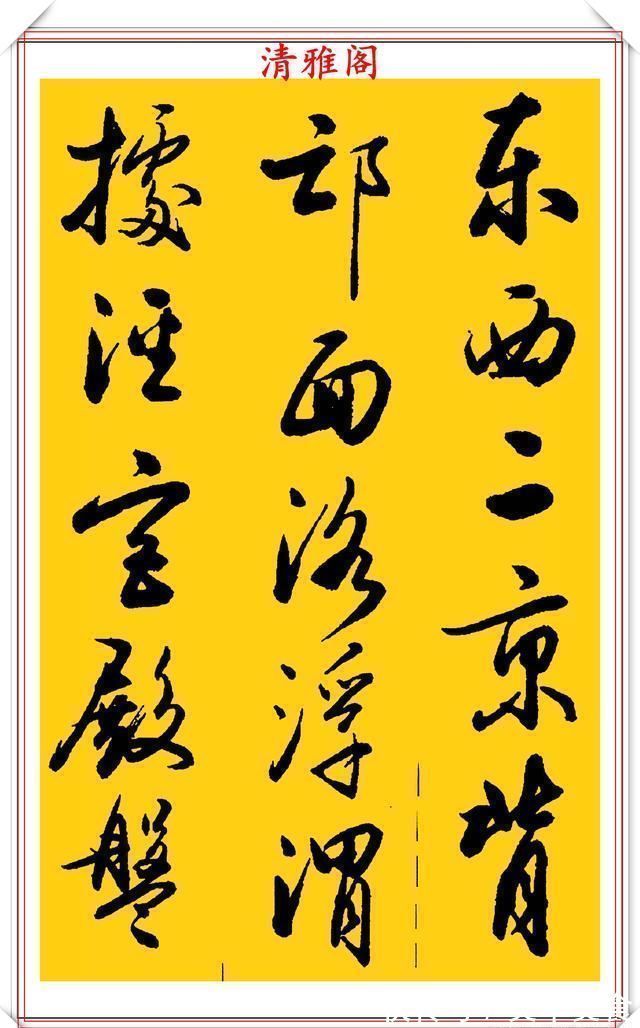 清雅阁
东西二京背
邙面洛浮渭
據泾宫殿盤